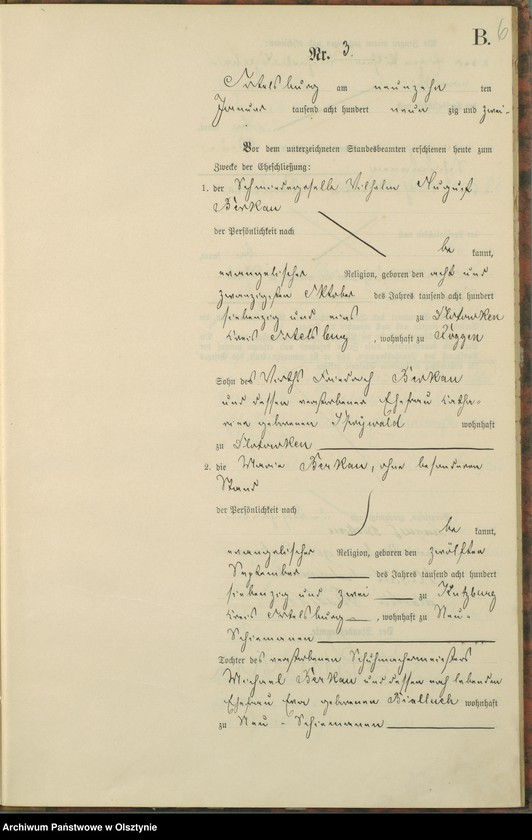 B. 6
Nr. 3.
Ortelsburg am neunzehn ten
Januar tausend acht hundert neun zig und zwei.
Vor dem unterzeichneten Standesbeamten erschienen heute zum
Zwecke der Eheschließung:
1. der Schmiedegeselle Wilhelm August
Berkau
der Persönlichkeit nach
be kannt,
evangelischer Religion, geboren den acht und
zwanzigsten Oktober des Jahres tausend acht hundert
siebenzig und eins zu
Kreis Ortelsburg, wohnhaft zu Röggen
Sohn des Wirths Friedrich Berkau
und dessen verstorbener Ehefrau Katha-
rine geborenen wohnhaft
zu
2. die Marie Berkau, ohne besonderen
Stand
der Persönlichkeit nach
be kannt,
evangelischer Religion, geboren den zwölften
September des Jahres tausend acht hundert
siebenzig und zwei zu Kutzburg
Kreis Ortelsburg, wohnhaft zu Neu-
Schiemanen
Tochter des verstorbenen Schuhmachermeisters
Michael Berkau und dessen noch lebenden
Ehefrau Eva geborenen Bialluch wohnhaft
zu Neu-Schiemanen
Archiwum Państwowe w Olsztynie